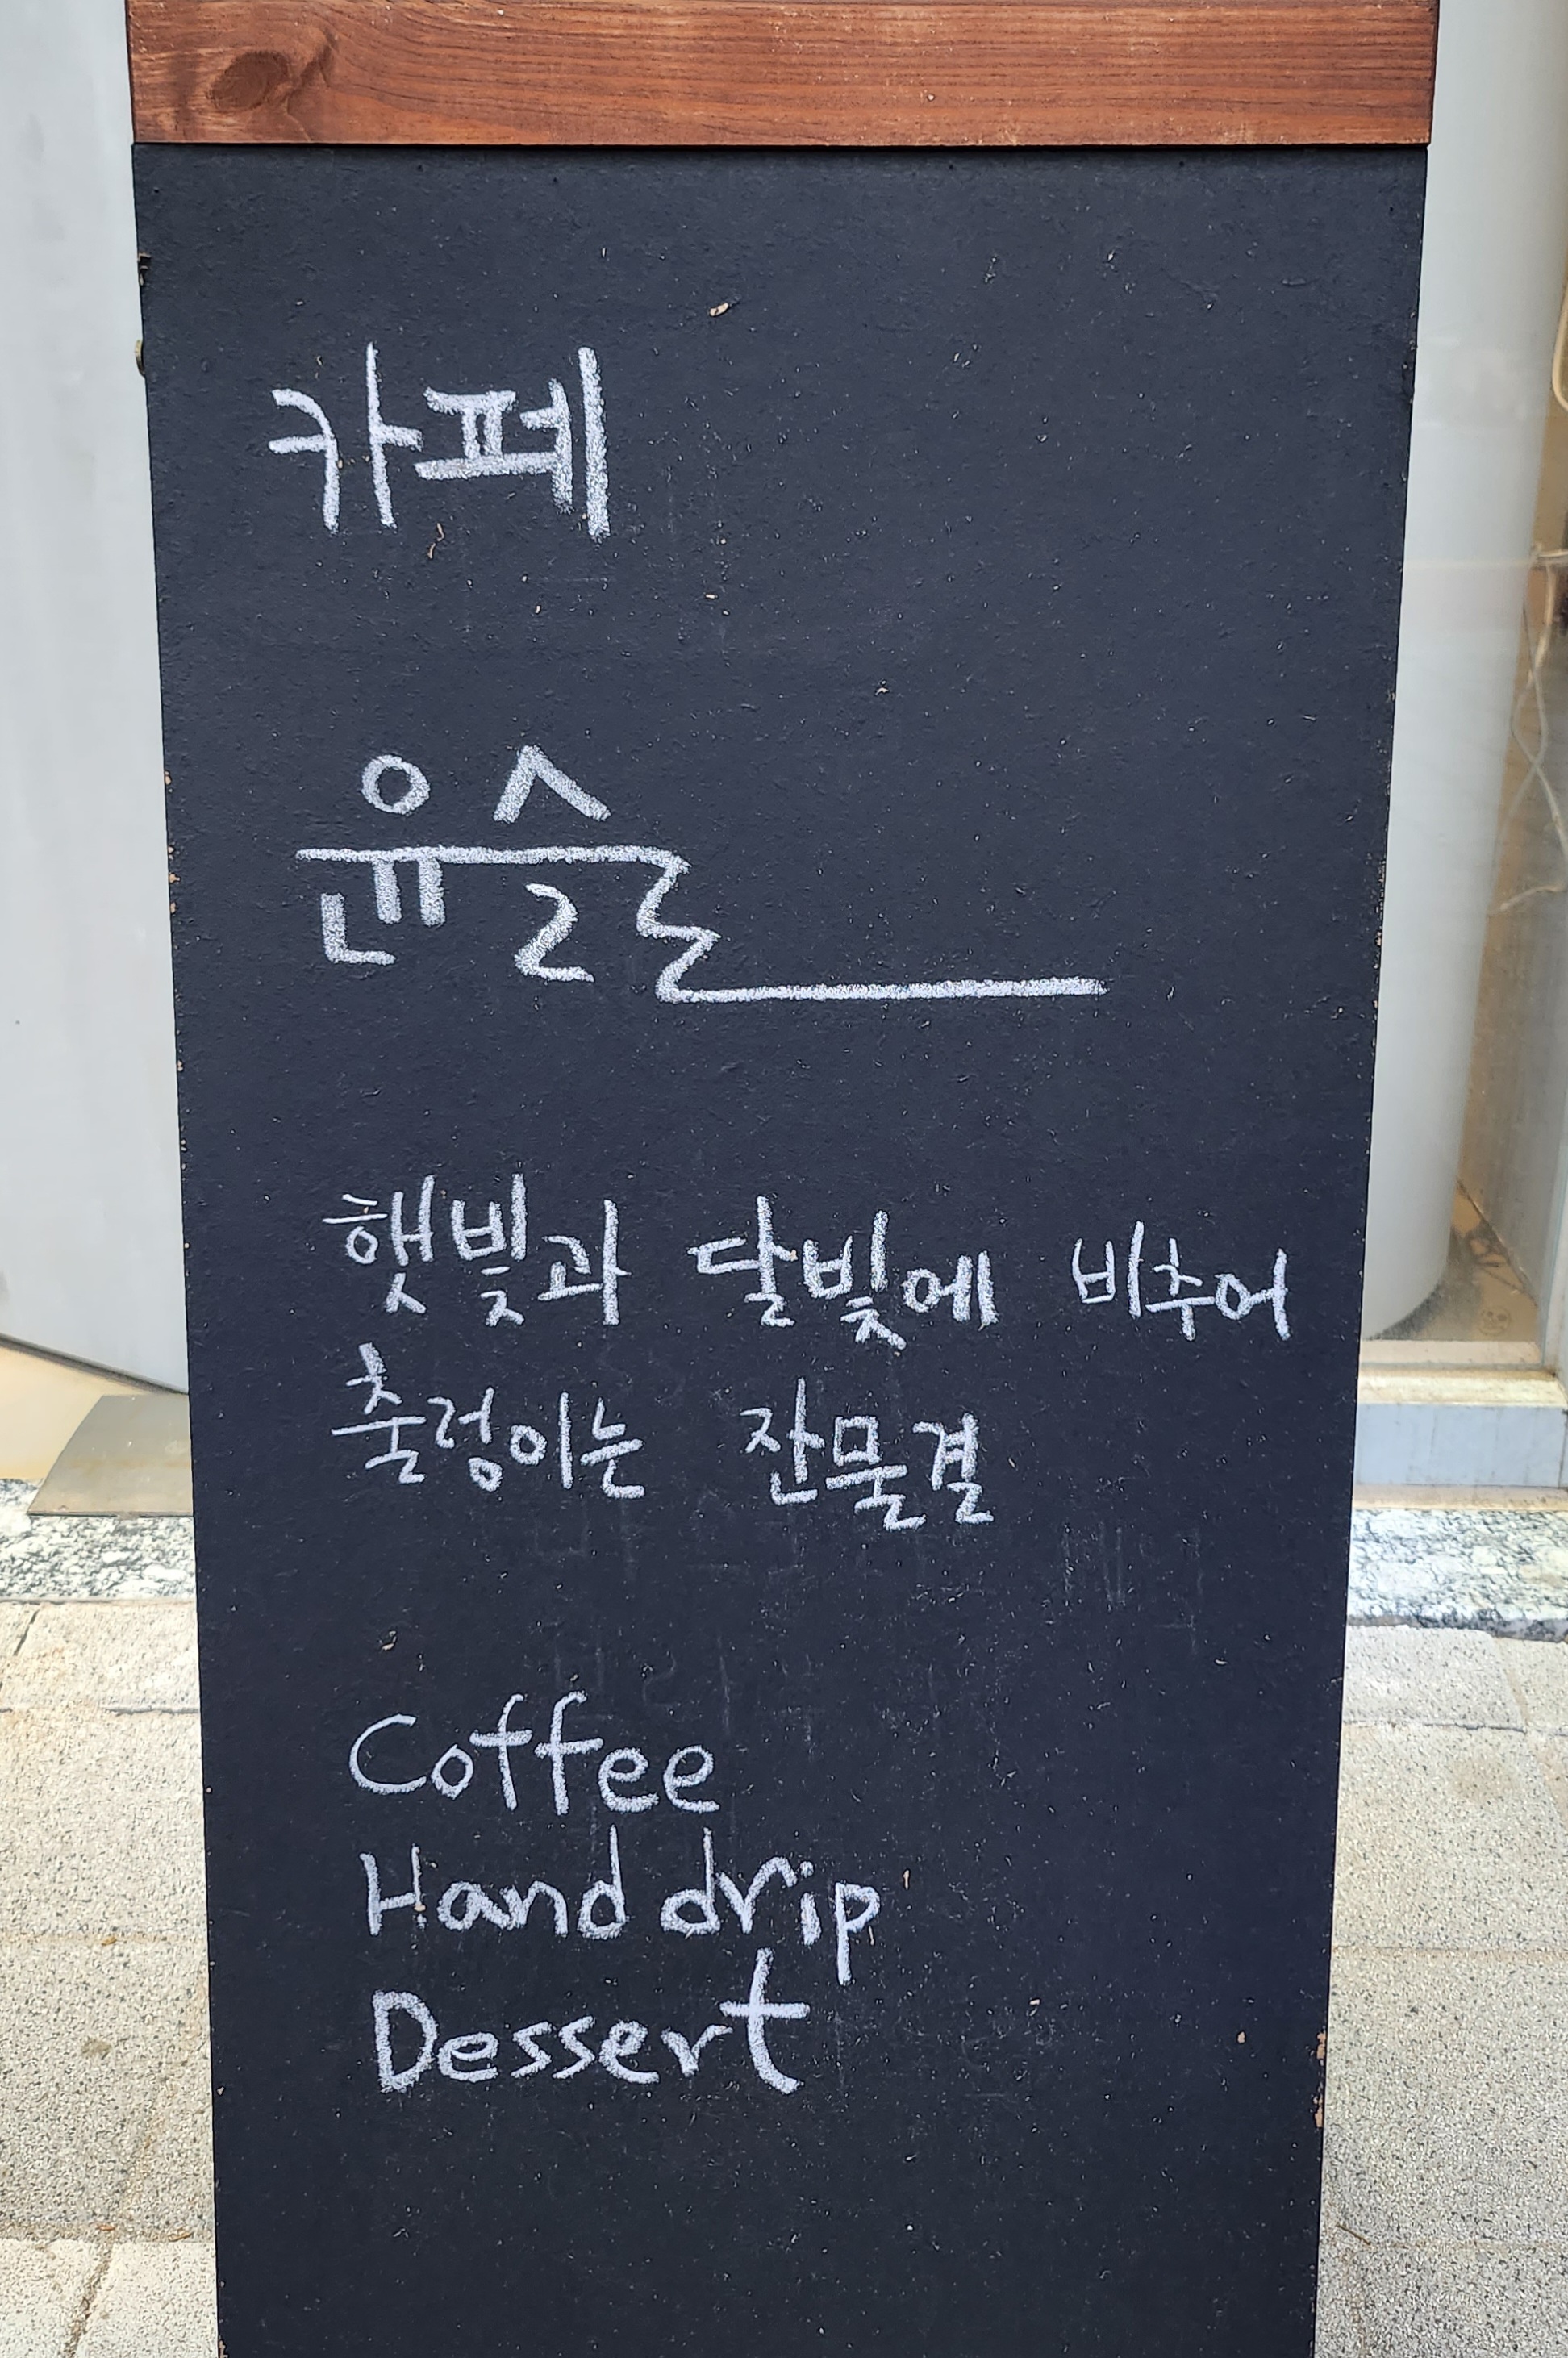 카페
윤슬
햇빛과 달빛에 비추어
출렁이는 잔물결
Coffee
Hand drip
Dessert